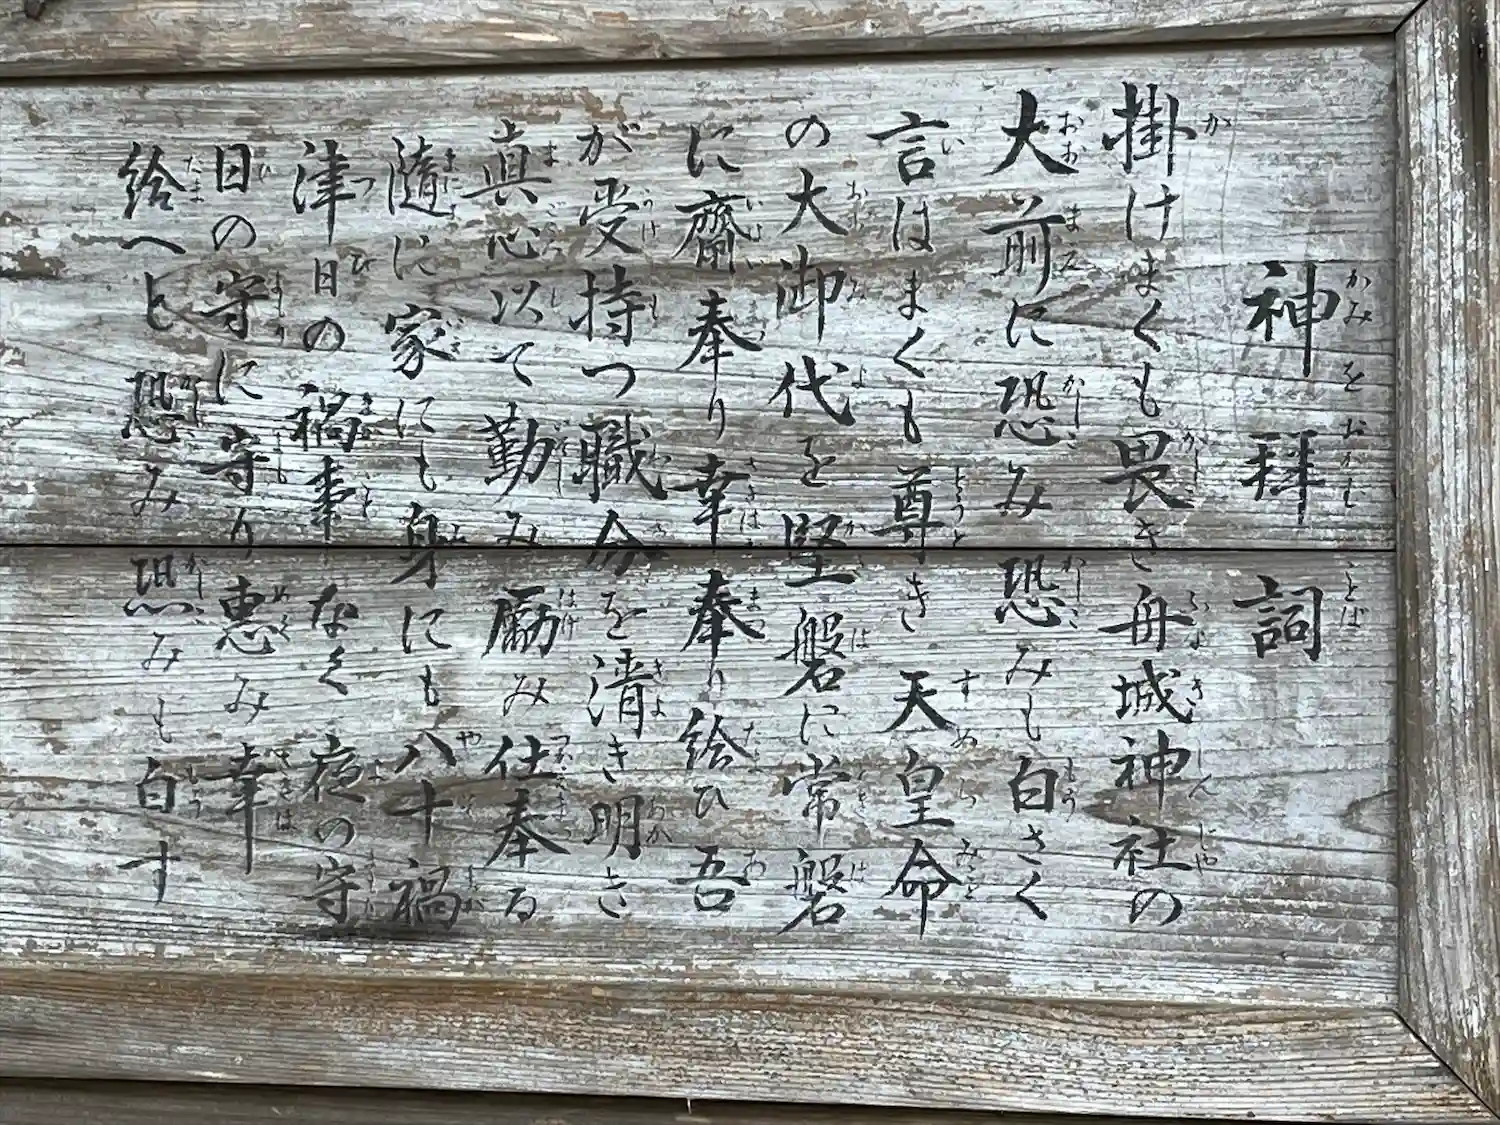 神拝詞
掛けまくも畏き舟城神社の
大前に恐み恐みも白さく
言はまくも尊き 天皇命
の大御代を堅磐に常磐
に齋奉り幸奉り給ひ吾
が受持つ職命を清き明き
真心以て勤み励み仕奉る
隨に家にも身にも八十禍
津日の禍事なく夜の守
日の守に守り恵み幸
給へと恐み恐みも白す